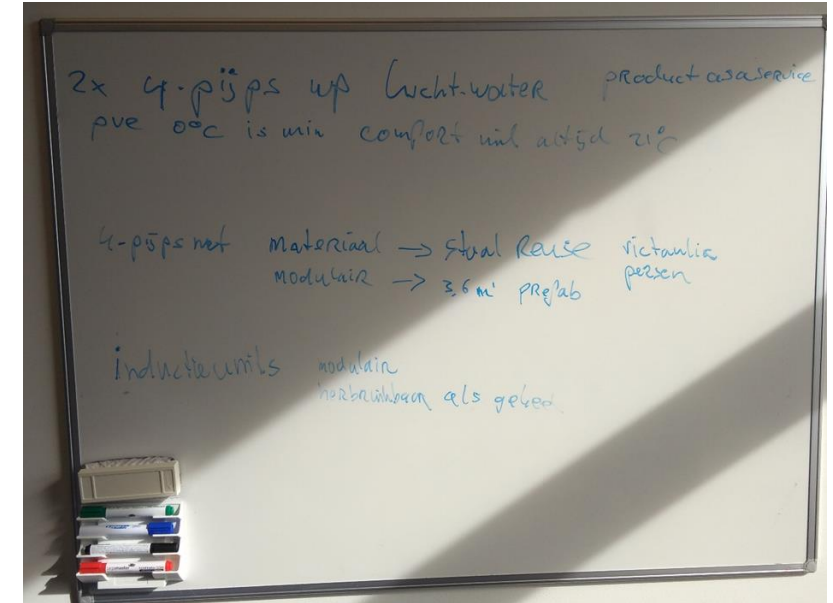 2x 4-pijps wp lucht-water product as a service
pve 0°C is min comfort wil altijd 21°C
4-pijps net materiaal → staal Reuse victaulic
modulair → 3,6 m' prefab persen
inductieunits modulair
herbruikbaar als geheel